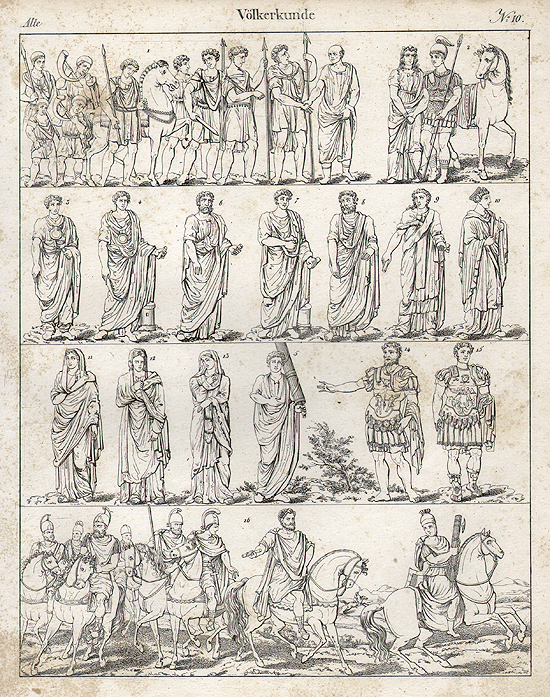 Alte
Völkerkunde
No. 10.
1
2
3 4 6 7 8 9 10
11 12 13 5 14 15
16